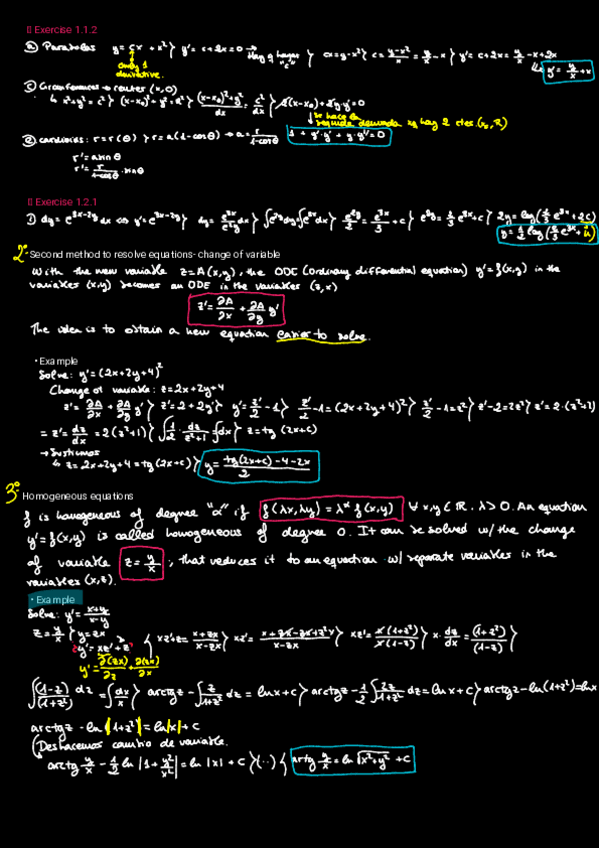 Exercise 1.1.2
a) Parabolas y = cx + x² } y' = c + 2x = 0 → Hay q hacer "c" } cx = y - x² } c = (y-x²)/x = y/x - x } y' = c + 2x = y/x - x + 2x
only 1 derivative.
y' = y/x + x
c) Circumferences → center (x,0)
↳ x² + y² = c² } (x-x₀)² + y² = R² } (x-x₀)² + y² / dx = c²/dx } 2(x-x₀) + 2y·y' = 0
↓ Se hace la segunda derivada xq hay 2 ctes. (x₀, R)
1 + y'·y' + y·y'' = 0
e) cardioids: r = r(θ) } r = a(1-cosθ) → a = r/(1-cosθ)
r' = a sin θ
r' = r/(1-cosθ) · sin θ
Exercise 1.2.1
1) dy = e^(3x-2y) dx ⇔ y' = e^(3x-2y) } dy = e^3x/e^2y dx } ∫e^2y dy = ∫e^3x dx } e^2y/2 = e^3x/3 + c } e^2y = 2/3 e^3x + c } 2y = log(2/3 e^3x + 2c)
y = 1/2 log(2/3 e^3x + u)
2º Second method to resolve equations- change of variable
With the new variable z = A(x,y), the ODE (ordinary differential equation) y' = f(x,y) in the
variables (x,y) becomes an ODE in the variables (z,x)
z' = ∂A/∂x + ∂A/∂y y'
The idea is to obtain a new equation easier to solve.
• Example
Solve: y' = (2x+2y+4)²
Change of variable: z = 2x+2y+4
z' = ∂A/∂x + ∂A/∂y y' } z' = 2 + 2y' } y' = z'/2 - 1 } z'/2 - 1 = (2x+2y+4)² } z'/2 - 1 = z² } z' - 2 = 2z² } z' = 2·(z²+1)
= z' = dz/dx = 2(z²+1) } ∫1/2 · dz/(z²+1) = ∫dx } z = tg(2x+c)
→ Sustituimos
↳ z = 2x+2y+4 = tg(2x+c) } y = (tg(2x+c) - 4 - 2x)/2
3º Homogeneous equations
f is homogeneous of degree "α" if f(λx, λy) = λ^α f(x,y) ∀ x,y ∈ ℝ, λ > 0. An equation
y' = f(x,y) is called homogeneous of degree 0. It can be solved w/ the change
of variable z = y/x, that reduces it to an equation w/ separate variables in the
variables (x,z).
• Example
Solve: y' = (x+y)/(x-y)
z = y/x } y = zx
y' = xz' + z { xz' + z = (x+zx)/(x-zx) } xz' = (x+zx-zx+z²x)/(x-zx) } xz' = x(1+z²)/x(1-z) } x · dz/dx = (1+z²)/(1-z) }
y' = ∂(zx)/∂z + ∂(zx)/∂x
∫(1-z)/(1+z²) dz = ∫dx/x } arctg z - ∫z/(1+z²) dz = ln x + c } arctg z - 1/2 ∫2z/(1+z²) dz = ln x + c } arctg z - ln(1+z²) = ln x
arctg z - ln|1+z²| = ln|x| + c
(Deshacemos cambio de variable.
arctg y/x - 1/2 ln|1 + y²/x²| = ln|x| + c } (..) { arctg y/x = ln √(x²+y²) + c